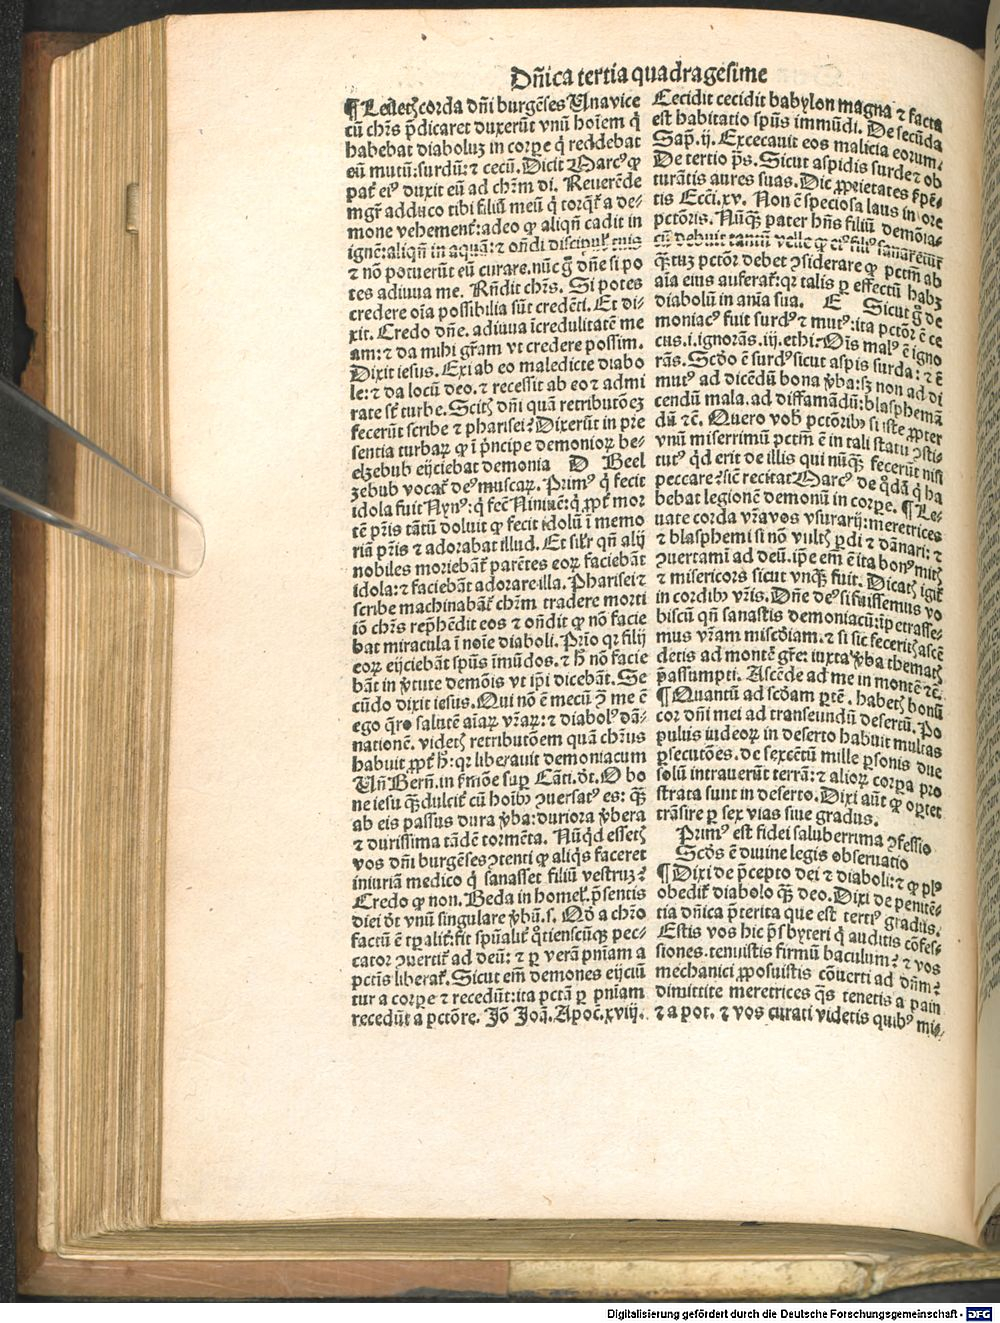 Dñica tertia quadragesime
¶ Leuetꝫ corda dñi burgēses Una vice
cū chr̄s p̄dicaret duxerūt vnū hoīem q̇
habebat diaboluꝫ in corꝑe q̇ reddebat
eū mutū: surdū: ⁊ cecū. Dicit Marcꝰ ꝙ
pat̄ eiꝰ duxit eū ad chr̄m di. Reuerēde
mgr̄ adduco tibi filiū meū q̇ torq̄t̄ a de⸗
mone vehement̄: adeo ꝙ aliqñ cadit in
igne: aliqñ in aquā: ⁊ oñdi discipul̄ tuis
⁊ nō potuerūt eū curare. nūc g̊ dñe si po
tes adiuua me. Rn̄dit chr̄s. Si potes
credere oīa possibilia sūt credēti. Et di⸗
xit. Credo dñe. adiuua īcredulitatē me
am: ⁊ da mihi gr̄am vt credere possim.
Dixit iesus. Exi ab eo maledicte diabo
le: ⁊ da locū deo. ⁊ recessit ab eo ⁊ admi
rate st̄ turbe. Scitꝫ dñi quā retributōeꝫ
fecerūt scribe ⁊ pharisei? Dixerūt in pre
sentia turbaꝝ ꝙ ī p̄ncipe demonioꝝ be⸗
elzebub eijciebat demonia D Beel
zebub vocat̄ deꝰ muscaꝝ. Primꝰ q̇ fecit
idola fuit Nynꝰ: q̇ fec̄ Niniuē: q̇ ꝓpt̄ mor
tē pr̄is tātū doluit ꝙ fecit idolū ī memo
riā pr̄is ⁊ adorabat illud. Et sil̄r qñ alij
nobiles moriebāt̄ parētes eoꝝ faciebāt
idola: ⁊ faciebāt adorare illa. Pharisei ⁊
scribe machinabāt̄ chr̄m tradere morti
iō chr̄s rep̄hēdit eos ⁊ oñdit ꝙ nō facie
bat miracula ī noīe diaboli. Prīo qꝛ filij
eoꝝ eijciebāt spūs īmūdos. ⁊ h̄ nō facie
bāt in v̇tute demōis vt ip̄i dicebāt. Se
cūdo dixit iesus. Qui nō ē mecū ↄ̄ me ē
ego q̄ro salutē aīaꝝ vr̄aꝝ: ⁊ diabolꝰ dā⸗
nationē. videtꝫ retributōem quā chr̄us
habuit ꝓpt̄ h̄: qꝛ liberauit demoniacum
Vñ Berñ. in ẜmōe suꝑ Cāti. ōt. O bo
ne iesu qꝫ̄ dulcit̄ cū hoībꝰ ↄuersatꝰ es: qꝫ̄
ab eis passus dura v̇ba: duriora v̇bera
⁊ durissima tādē tormēta. Nūqd̄ essetꝫ
vos dñi burgēses ↄtenti ꝙ aliqs̄ faceret
iniuriā medico q̇ sanasset filiū vestruꝫ?
Credo ꝙ non. Beda in homel̄. p̄sentis
diei ōt vnū singulare v̇bū. s. Qd̄ a chr̄o
factū ē tꝑalit̄: fit spūalit̄ q̄tienscūqꝫ pec⸗
cator ↄuertit̄ ad deū: ⁊ ꝑ verā pn̄iam a
pctīs liberat̄. Sicut em̄ demones eijciū
tur a corꝑe ⁊ recedūt: ita pctā ꝑ pn̄iam
recedūt a pctōre. Iō Joā. Apoc̄. xviij.
Cecidit cecidit babylon magna ⁊ facta
est habitatio spūs immūdi. De secūda
Sap̄. ij. Excecauit eos malicia eorum.
De tertio p̄s. Sicut aspidis surde ⁊ ob
turātis aures suas. Dic ꝓprietates ẜpē⸗
tis Ecci. xv. Non ē speciosa laus in ore
pctōris. Nūqꝫ̄ pater hñs filiū demōia⸗
cū debuit tantū velle ꝙ eiꝰ filiꝰ sanaretur
qꝫ̄tuꝫ pctōr debet ↄsiderare ꝙ pctm̄ ab
aīa eius auferat̄: qꝛ talis ꝑ effectū habꝫ
diabolū in anīa sua. E Sicut g̊ de
moniacꝰ fuit surdꝰ ⁊ mutꝰ: ita pctōr ē ce
cus. i. ignorās. iij. ethi. Oīs malꝰ ē igno
rās. Scd̄o ē surdꝰ sicut aspis surda: ⁊ ē
mutꝰ ad dicēdū bona v̇ba: sꝫ non ad di
cendū mala. ad diffamādū: blasphemā
dū ⁊c̄. Quero vob̄ pctōribꝰ si iste ꝓpter
vnū miserrimū pctm̄ ē in tali statu ↄsti⸗
tutꝰ qd̄ erit de illis qui nūqꝫ̄ fecerūt nisi
peccare? sic̄ recitat Marcꝰ de q̄dā q̇ ha
bebat legionē demonū in corꝑe. ¶ Le⸗
uate corda vr̄a vos vsurarij: meretrices
⁊ blasphemi si nō vultꝫ ꝑdi ⁊ dānari: ⁊
ↄuertami ad deū. ip̄e em̄ ē ita bonꝰ mitꝫ
⁊ misericors sicut vnqꝫ̄ fuit. Dicatꝫ igit̄
in cordibꝰ vr̄is. Dñe deꝰ si fuissemus vo
biscū qñ sanastis demoniacū: īpetrasse⸗
mus vr̄am miscd̄iam. ⁊ si sic feceritꝫ ascē
detis ad montē gr̄e: iuxta v̇ba thematꝫ
p̄assumpti. Ascēde ad me in montē ⁊c̄.
¶ Quantū ad scd̄am ꝑtē. habetꝫ bonū
cor dñi mei ad transeundū desertū. Po
pulus iudeoꝝ in deserto habuit multas
ꝑsecutōes. de sexcētū mille ꝑsonis due
solū intrauerūt terrā: ⁊ alioꝝ corꝑa pro
strata sunt in deserto. Dixi aūt ꝙ oꝑtet
trāsire ꝑ sex vias siue gradus.
Primꝰ est fidei saluberrima ↄfessio
Scd̄s ē diuine legis obseruatio
¶ Dixi de p̄cepto dei ⁊ diaboli: ⁊ ꝙ plꝰ
obedit̄ diabolo qꝫ̄ deo. Dixi de penitē⸗
tia dñica p̄terita que est tertiꝰ gradus.
Estis vos hic p̄sbyteri q̇ auditis cōfes⸗
siones. tenuistis firmū baculum? ⁊ vos
mechanici ꝓposuistis cōuerti ad dñm?
dimittite meretrices qs̄ tenetis a pain
⁊ a pot. ⁊ vos curati videtis quibꝰ mi⸗
Digitalisierung gefördert durch die Deutsche Forschungsgemeinschaft - DFG